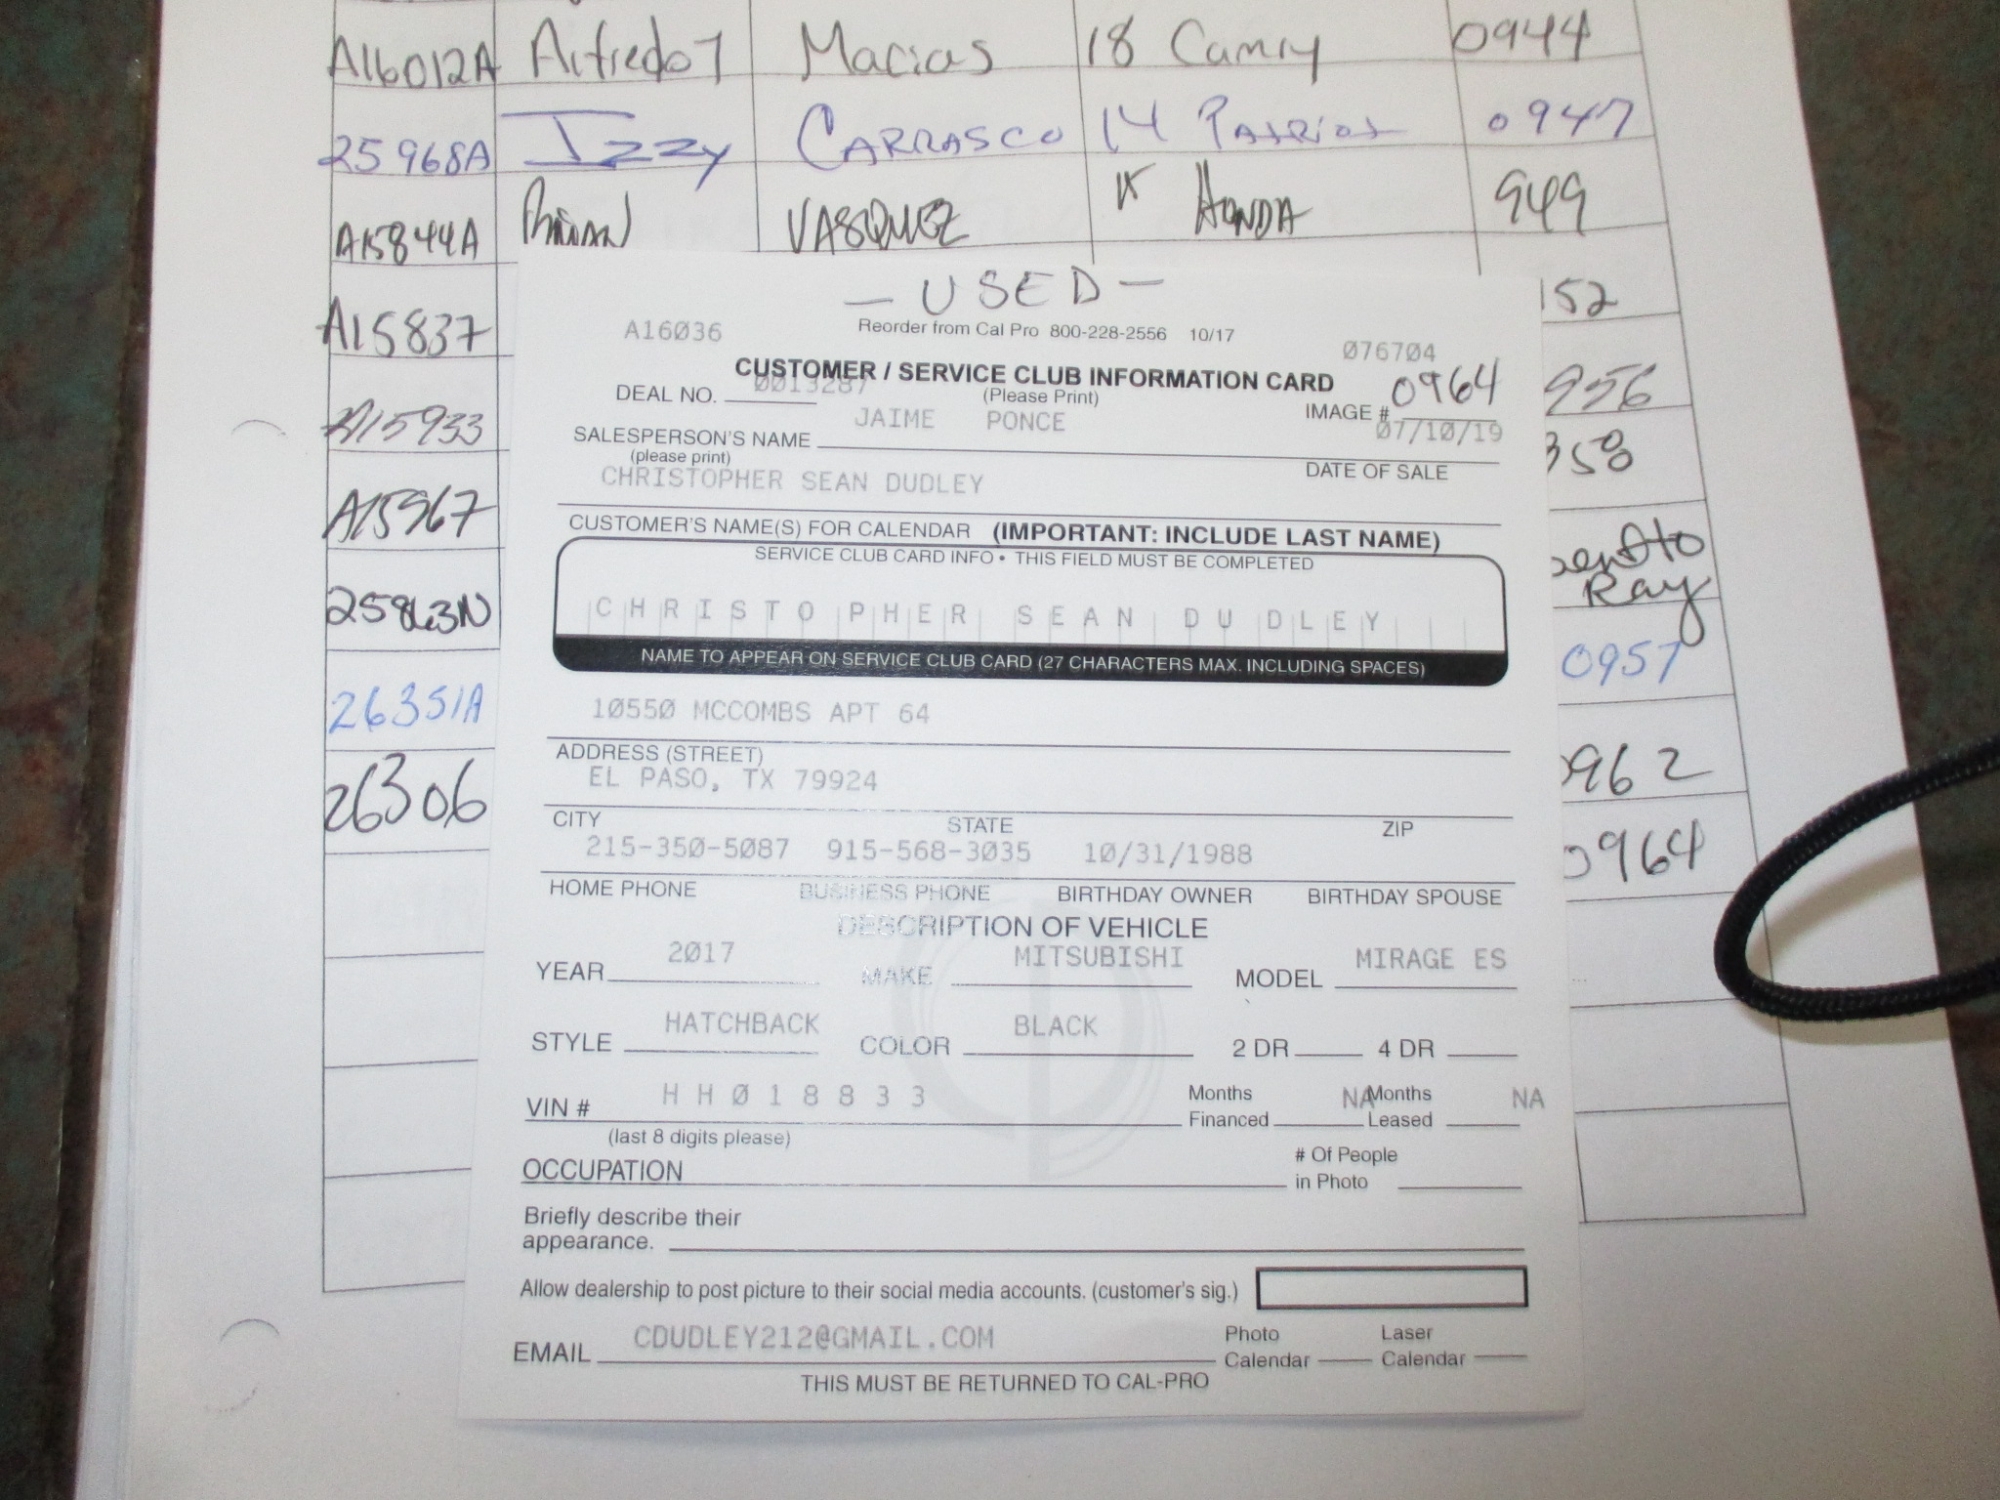 A16012A Alfredo 7 Macias 18 Camry 0944
25968A Izzy CARRASCO 14 Patriot 0947
A15844A VASQUEZ HONDA 949
A15837 152
A15933 956
A15967 358
25863N Sent to
Ray
26351A 0957
26306 0962
0964
— USED —
A16036 Reorder from Cal Pro 800-228-2556 10/17
076704
CUSTOMER / SERVICE CLUB INFORMATION CARD
DEAL NO. 0013287 (Please Print) IMAGE # 0964
JAIME PONCE 07/10/19
SALESPERSON'S NAME
(please print) DATE OF SALE
CHRISTOPHER SEAN DUDLEY
CUSTOMER'S NAME(S) FOR CALENDAR (IMPORTANT: INCLUDE LAST NAME)
SERVICE CLUB CARD INFO • THIS FIELD MUST BE COMPLETED
CHRISTOPHER SEAN DUDLEY
NAME TO APPEAR ON SERVICE CLUB CARD (27 CHARACTERS MAX. INCLUDING SPACES)
10550 MCCOMBS APT 64
ADDRESS (STREET)
EL PASO, TX 79924
CITY STATE ZIP
215-350-5087 915-568-3035 10/31/1988
HOME PHONE BUSINESS PHONE BIRTHDAY OWNER BIRTHDAY SPOUSE
DESCRIPTION OF VEHICLE
YEAR 2017 MAKE MITSUBISHI MODEL MIRAGE ES
STYLE HATCHBACK COLOR BLACK 2 DR 4 DR
VIN # HH018833 Months Financed NA Months Leased NA
(last 8 digits please)
OCCUPATION # Of People in Photo
Briefly describe their
appearance.
Allow dealership to post picture to their social media accounts. (customer's sig.)
EMAIL CDUDLEY212@GMAIL.COM Photo Calendar Laser Calendar
THIS MUST BE RETURNED TO CAL-PRO